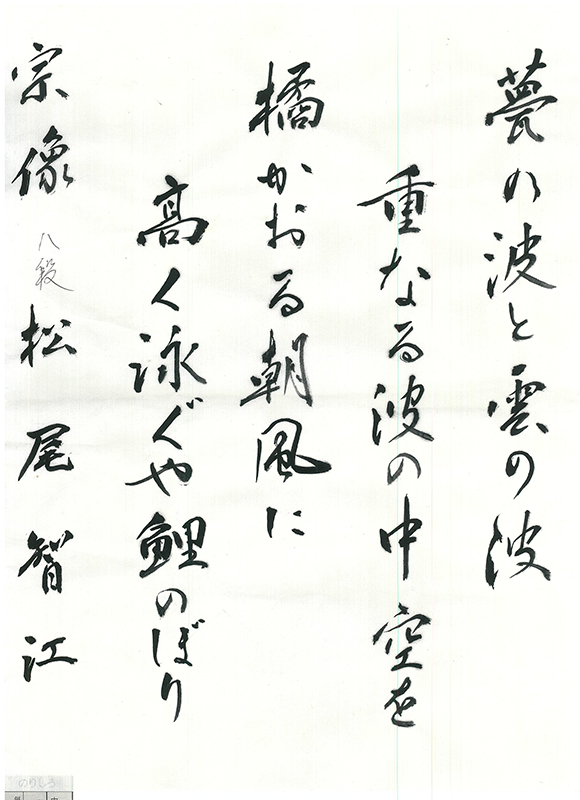 甍の波と雲の波
重なる波の中空を
橘かおる朝風に
高く泳ぐや鯉のぼり
宗像 八段 松尾智江
のりしろ